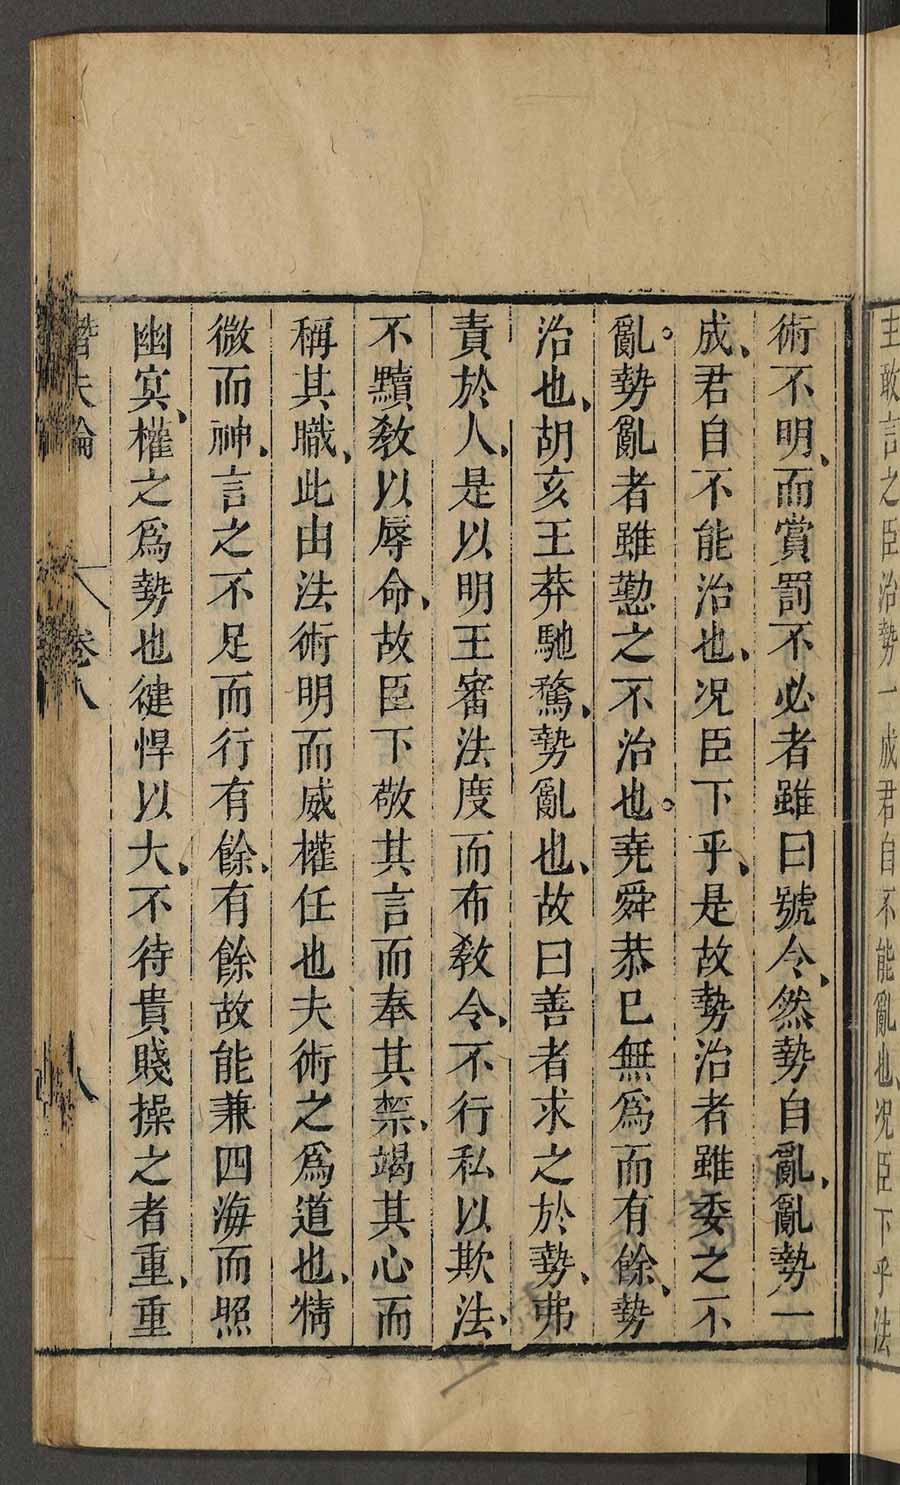 主敢言之臣治勢一成君自不能亂也、况臣下乎法
術不明、而賞罰不必者雖曰號令、然勢自亂、亂勢一
成、君自不能治也、况臣下乎、是故勢治者雖委之不
亂。勢亂者雖懃之不治也。堯舜恭已無爲而有餘、勢
治也、胡亥王莽馳騖、勢亂也、故曰善者求之於勢、弗
責於人、是以明王審法度而布敎令、不行私以欺法、
不黷敎以辱命、故臣下敬其言而奉其禁、竭其心而
稱其職、此由法術明而威權任也夫術之爲道也、精
微而神、言之不足而行有餘、有餘故能兼四海而照
幽冥、權之爲勢也健悍以大、不待貴賤操之者重、重
潛夫論 卷八 八